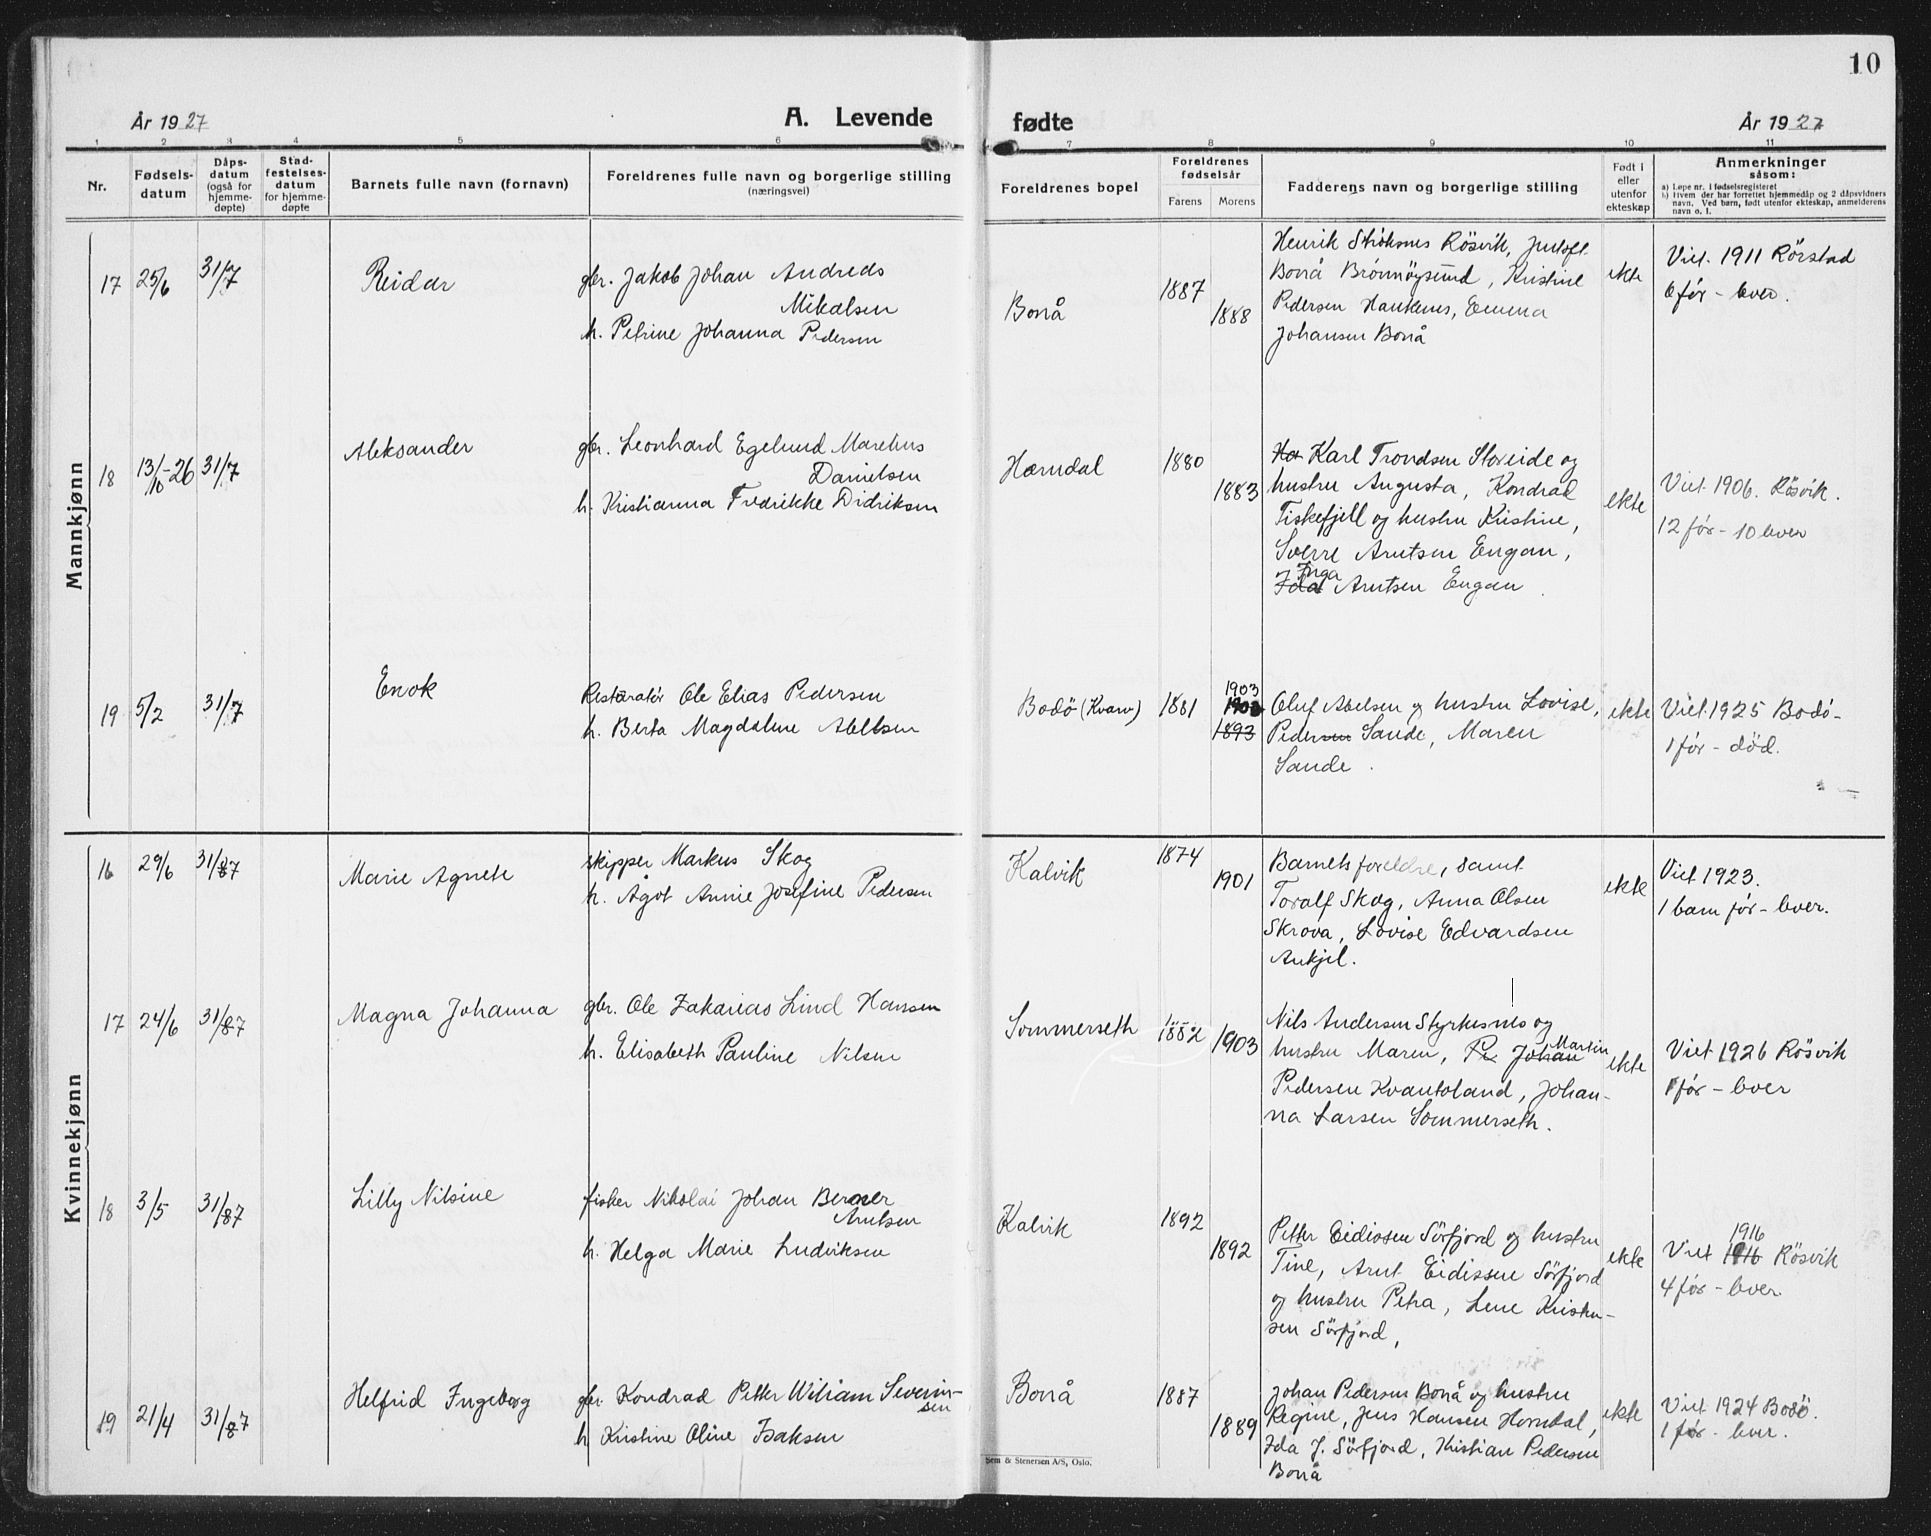 10
År 1927
A. Levende
fødte
År 1927
1 2 3 4 5 6 7 8 9 10 11
Nr.
Fødsels-
datum
Dåps-
datum
(også for
hjemme-
døpte)
Stad-
festelses-
datum
for hjemme-
døpte
Barnets fulle navn (fornavn)
Foreldrenes fulle navn og borgerlige stilling
(næringsvei)
Foreldrenes bopel
Foreldrenes
fødselsår
Farens Morens
Fadderens navn og borgerlige stilling
Født i
eller
utenfor
ekteskap
Anmerkninger
såsom:
a) Løpe nr. i fødselsregisteret
b) Hvem der har forrettet hjemmedåp og 2 dåpsvidners
navn. Ved barn, født utenfor ekteskap, anmelderens
navn o. l.
Mannkjønn
17 25/6 31/7
Reidar
gbr. Jakob Johan Andreas
Mikalsen
h. Petrine Johanna Pedersen
Bonå
1887
1888
Henrik Strøksnes Rösvik,
Bonå Brönnöysund, Kristine
Pedersen Haukenes, Emma
Johansen Bonå
ekte
Viet. 1911 Rörstad
6 før - lever.
18 13/10-26 31/7
Aleksander
gbr. Leonhard Egelund Marelius
Danielsen
h. Kristianna Fredrikke Didriksen
Hærndal
1880
1883
Ha Karl Trondsen Storeide og
hustru Augusta, Kondrad
Tiskefjell og hustru Kristine,
Sverre Arntsen Engan,
Inga
Ida Arntsen Engan
ekte
Viet 1906. Rösvik.
12 før - 10 lever
19 5/2 31/7
Enok
Restaratör Ole Elias Pedersen
h. Berta Magdalene Abelsen
Bodö (Kvarv)
1881
1903
1903
1893
Oluf Abelsen og hustru Lovise,
Pedersen Sande, Maren
Sande.
ekte
Viet 1925 Bodö-
1 før - död.
Kvinnekjønn
16 29/6 31/87
Marie Agnete
skipper Markus Skog
h. Ågot Annie Josefine Pedersen
Kalvik
1874
1901
Barnets foreldre, samt
Toralf Skog, Anna Olsen
Skrova, Lovise Edvardsen
Ankjel.
ekte
Viet 1923.
1 barn før - lever.
17 24/6 31/87
Magna Johanna
gbr. Ole Zakarias Lind Hansen
h. Elisabeth Pauline Nilsen
Sommerseth
1882
1903
Nils Andersen Styrkesnes og
hustru Maren, Per Johan Martin
Pedersen Kvantoland, Johan-
na Larsen Sommerseth.
ekte
Viet 1926 Rösvik
1 før - lever
18 3/5 31/87
Lilly Nilsine
fisker Nikolai Johan Berner
Arntsen
h. Helga Marie Ludviksen
Kalvik
1892
1892
Petter Eidissen Sörfjord og hustru
Tine, Arnt Eidissen Sörfjord
og hustru Petra, Lene Kristen-
sen Sörfjord,
ekte
1916
Viet 1916 Rösvik
4 før - lever
19 21/4 31/87
Helfrid Ingeborg
gbr. Kondrad Petter Wiliam Severin-
sen
h Kristine Oline Isaksen
Bonå
1887
1889
Johan Pedersen Bonå og hustru
Regine, Jens Hansen Horndal,
Ida J. Sörfjord, Kristian Pedersen
Bonå
ekte
Viet 1924 Bodö.
1 før - lever.
Sem & Stenersen A/S, Oslo.